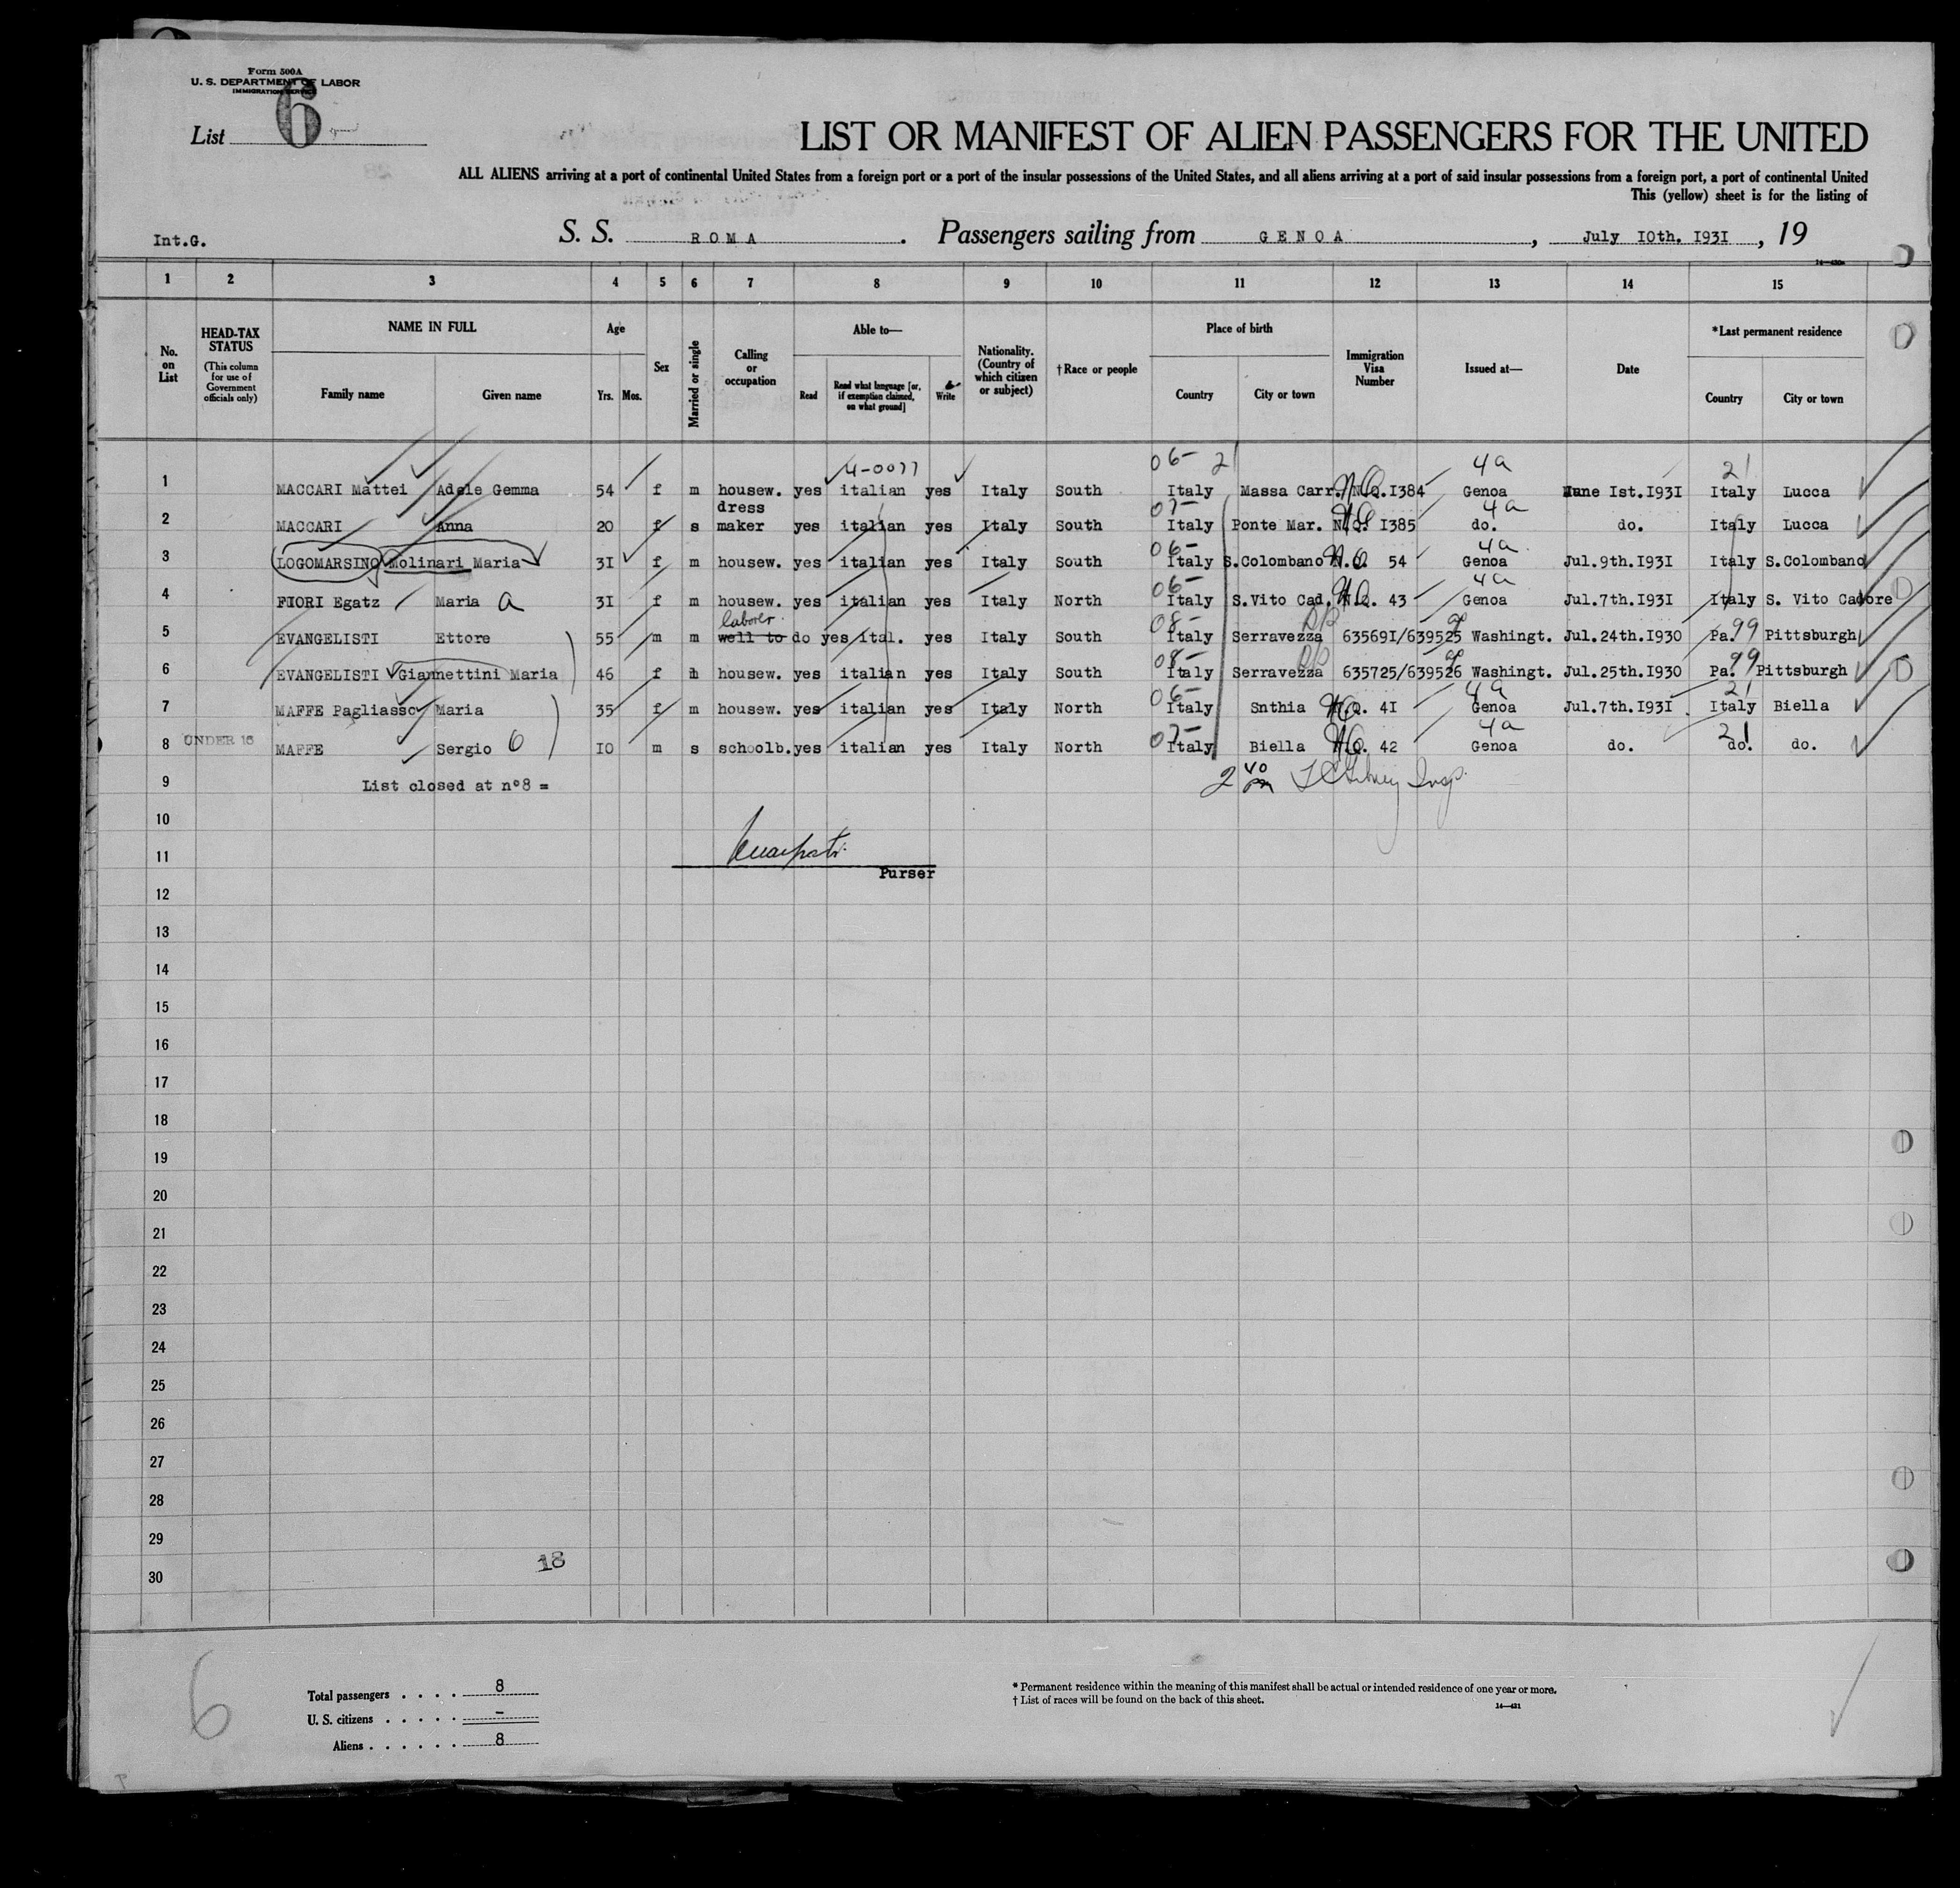 Form 500A
U. S. DEPARTMENT OF LABOR
IMMIGRATION SERVICE
List 6
LIST OR MANIFEST OF ALIEN PASSENGERS FOR THE UNITED
ALL ALIENS arriving at a port of continental United States from a foreign port or a port of the insular possessions of the United States, and all aliens arriving at a port of said insular possessions from a foreign port, a port of continental United
This (yellow) sheet is for the listing of
Int.G. S. S. ROMA. Passengers sailing from GENOA, July 10th. 1931, 19
1 2 3 4 5 6 7 8 9 10 11 12 13 14 15
No. on List
HEAD-TAX STATUS (This column for use of Government officials only)
NAME IN FULL Family name Given name
Age Yrs. Mos.
Sex
Married or single
Calling or occupation
Able to— Read Read what language [or, if exemption claimed, on what ground] Write
Nationality. (Country of which citizen or subject)
†Race or people
Place of birth Country City or town
Immigration Visa Number
Issued at—
Date
*Last permanent residence Country City or town
4-0077 06- 21 4a 21
1 MACCARI Mattei Adele Gemma 54 f m housew. yes italian yes Italy South Italy Massa Carr. N.Q. 1384 Genoa June 1st.1931 Italy Lucca
07- 4a
2 MACCARI Anna 20 f s dress maker yes italian yes Italy South Italy Ponte Mar. N.Q. 1385 do. do. Italy Lucca
06- 4a
3 LOGOMARSINO Molinari Maria 31 f m housew. yes italian yes Italy South Italy S.Colombano N.Q. 54 Genoa Jul.9th.1931 Italy S.Colombano
06- 4a
4 FIORI Egatz Maria a 31 f m housew. yes italian yes Italy North Italy S.Vito Cad. N.Q. 43 Genoa Jul.7th.1931 Italy S. Vito Cadore
laborer 08- RP 99
5 EVANGELISTI Ettore 55 m m well to do yes ital. yes Italy South Italy Serravezza 635691/639525 Washingt. Jul.24th.1930 Pa. Pittsburgh
08- RP 99
6 EVANGELISTI Giannettini Maria 46 f m housew. yes italian yes Italy South Italy Serravezza 635725/639526 Washingt. Jul.25th.1930 Pa. Pittsburgh
06- 4a 21
7 MAFFE Pagliasso Maria 35 f m housew. yes italian yes Italy North Italy Snthia N.Q. 41 Genoa Jul.7th.1931 Italy Biella
07- 4a 21
8 UNDER 16 MAFFE Sergio 6 10 m s schoolb. yes italian yes Italy North Italy Biella N.Q. 42 Genoa do. do. do.
9 List closed at n°8 = 2 40 pm Insp.
10
11
Purser
12
13
14
15
16
17
18
19
20
21
22
23
24
25
26
27
28
29
18
30
6
Total passengers . . . . 8
U. S. citizens . . . . . -
Aliens . . . . . . 8
* Permanent residence within the meaning of this manifest shall be actual or intended residence of one year or more.
† List of races will be found on the back of this sheet.
14—431